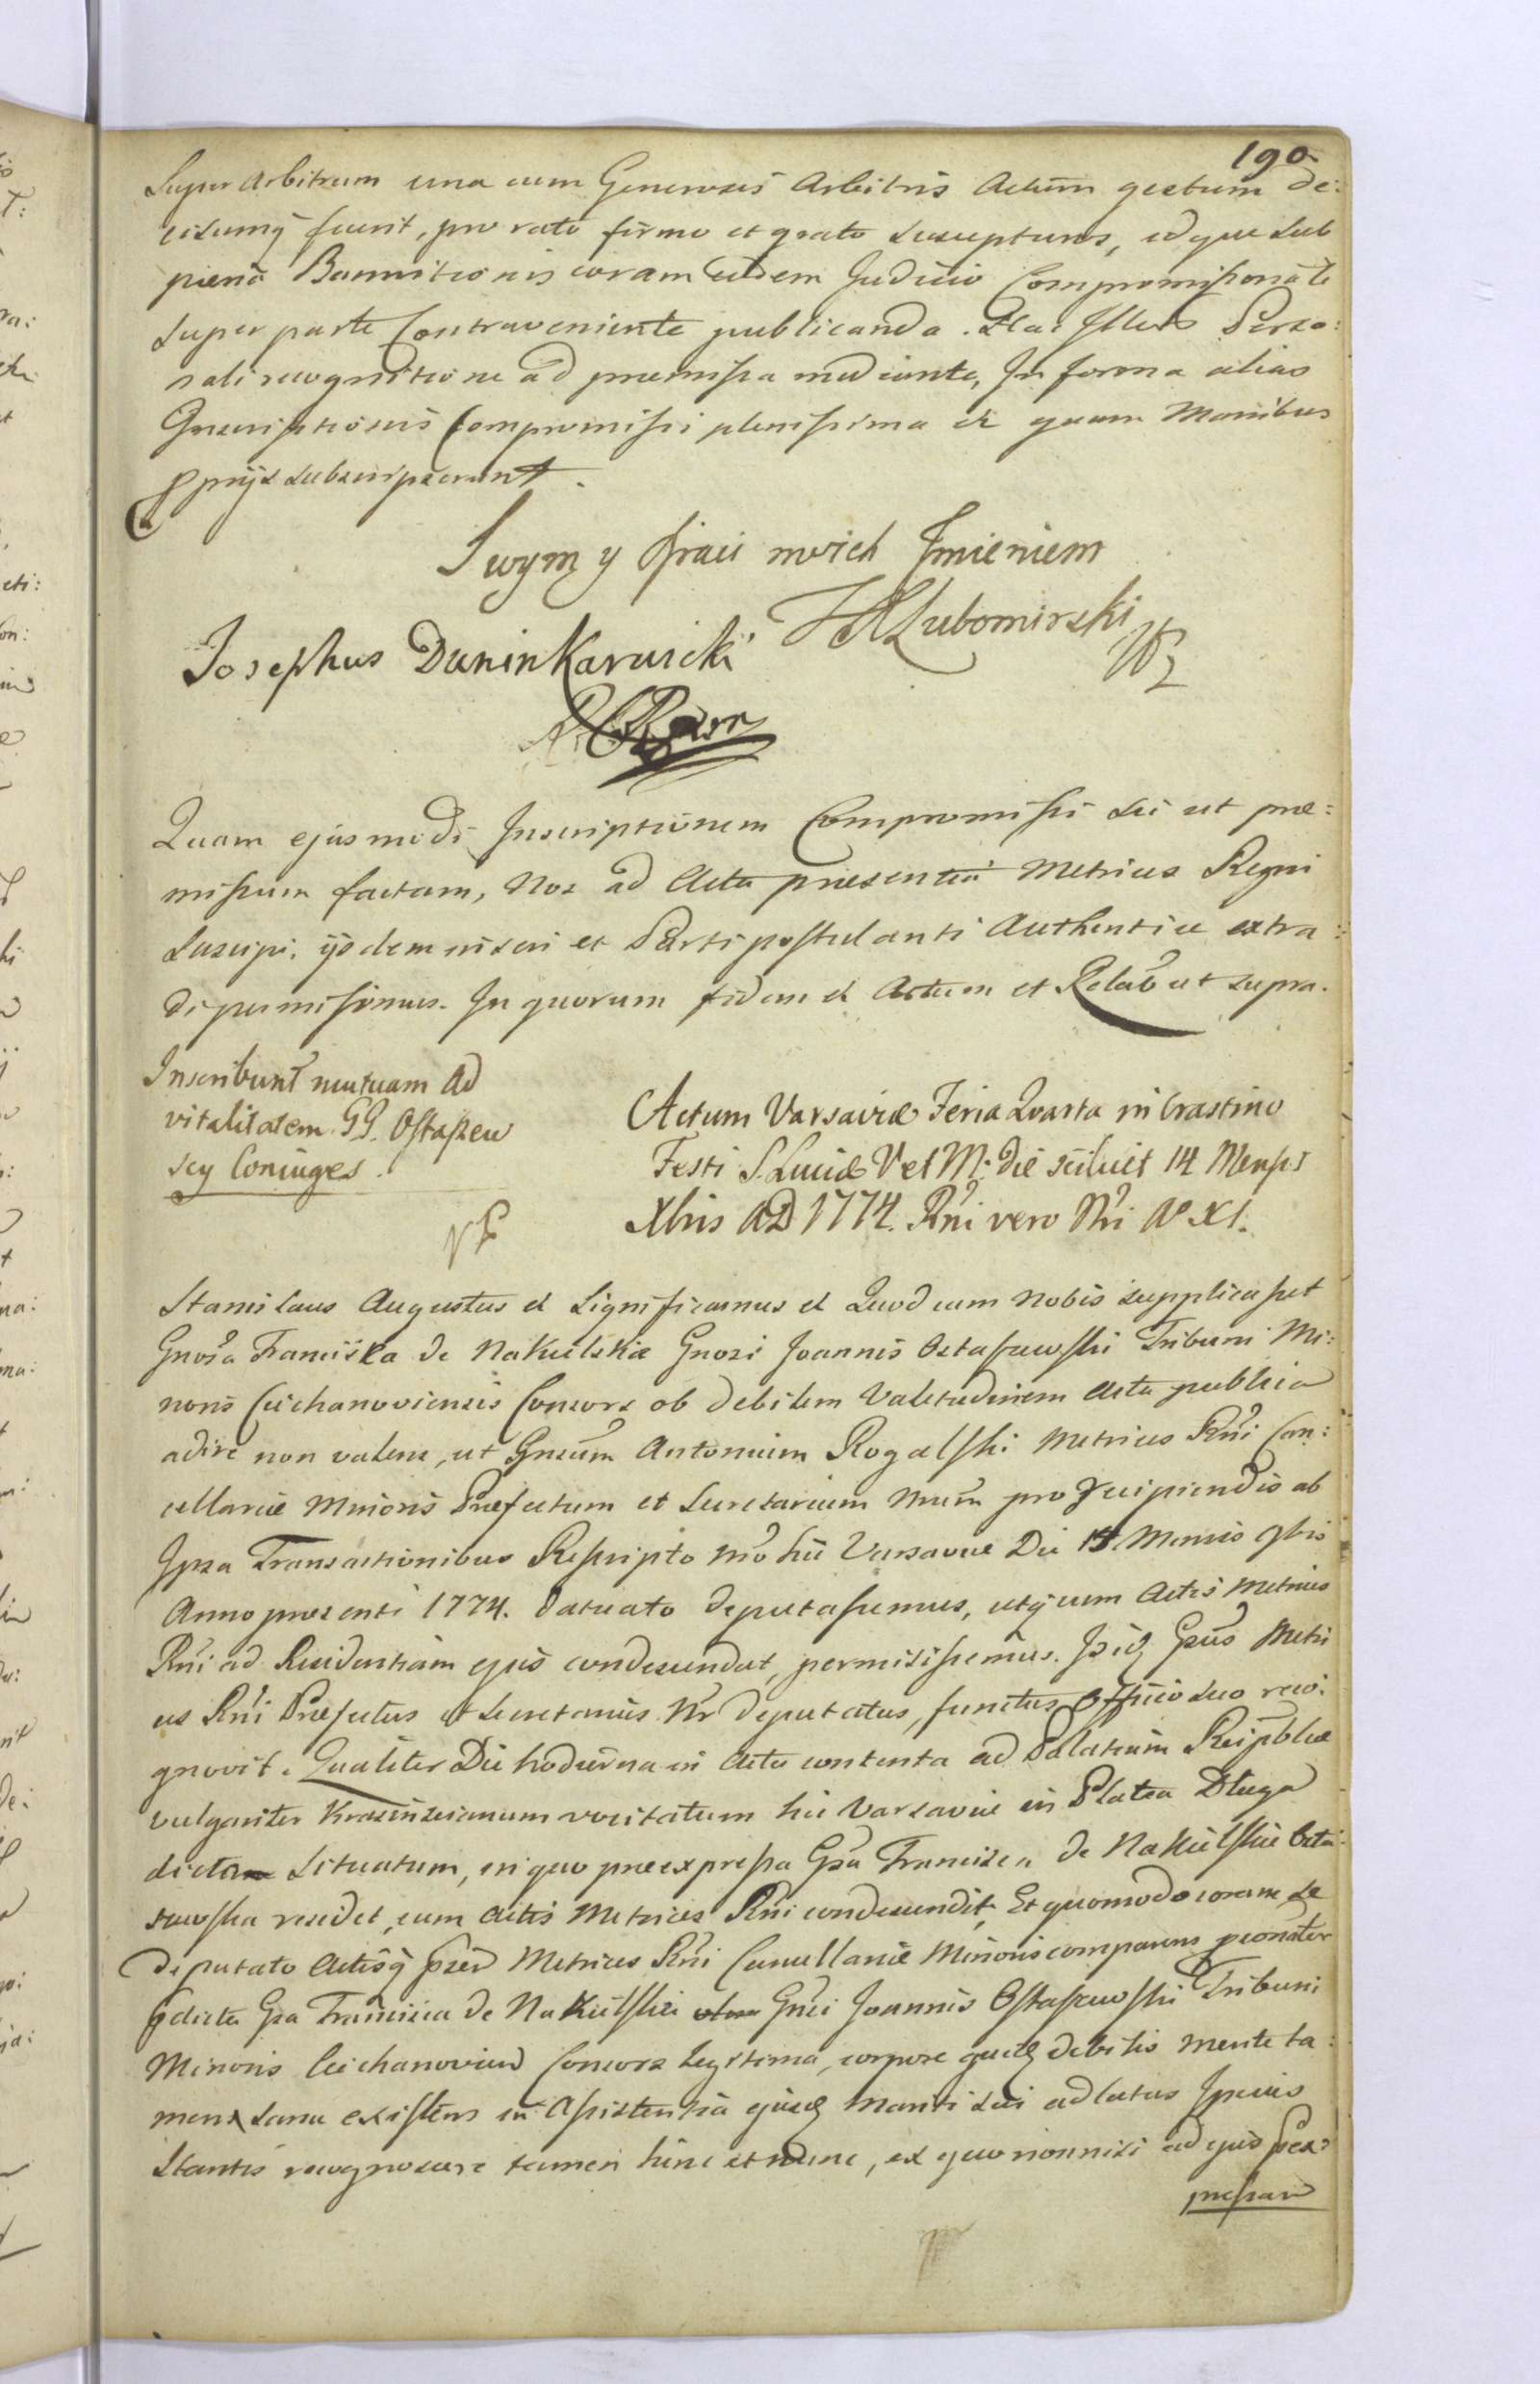 190
Super Arbitrum una cum Generosis Arbitris Actum gestum de:
cisumq fuerit, pro rato firmo et grato suscepturos, idque sub
pœna Bannitionis coram eodem Judicio Compromissionali
super parte Contraveniente publicanda. Hac Illrũ Perso:
nali recognitione ad præmissa mediante, In forma alias
Inscriptionis Compromissi plenissima et quam Manibus
ppriis subscripserunt.
Swym y Braci moich Imieniem
Lubomirski
Josephus Dunin Karwicki
Quam ejusmodi Inscriptionem Compromissi sui ut præ:
missum factam, Nos ad Acta præsentia Metrices Regni
Suscipi, iisdem inseri et Parti postulanti Authentice extra:
di permisimus. In quorum fidem et Actum et Relat ut supra.
Inscribunt mutuam ad
vitalitatem GG. Ostaszew
scy Coniuges.
Actum Varsaviæ Feria Quarta in Crastino
Festi S. Luciæ V et M. die scilicet 14 Mensis
Xbris AD 1774. Rñi vero Nri A° XI.
Stanislaus Augustus et Significamus et Quod cum nobis supplicasset
Gnosa Franciska de Nakulskie Gnosi Joannis Ostaszewski Tribuni Mi:
noris Ciechanoviensis Consors ob debilem Valetudinem Acta publica
adire non valens, ut Gnsum Antonium Rogalski Metrices Rñi Can:
cellariæ Minoris Præfectum et Secretarium Nrum pro recipiendis ab
Ipsa Transactionibus Rescripto nro hic Varsaviæ Die 15 Mensis 9bris
Anno præsenti 1774. datuato deputassemus, utq cum Actis Metrices
Rñi ad Residentiam ejus condescendat, permisissemus. Isq Gsus Metri
ces Rñi Præfectus et Secretarius Nr deputatus, functus Officio suo reco:
gnovit. Qualiter Die hodierna in Actu contenta ad Palatium Reipblcæ
vulgariter Krasinscianum vocitatum hic Varsaviæ in Platea Długa
dicta Situatum, in quo præexpressa Gsa Francisca de Nakulskie Osta:
szewska residet, cum Actis Metrices Rñi condescendit, Et quomodo coram se
deputato Actisq præs Metrices Rñi Cancellariæ Minoris comparens psonaliter
pdicta Gsa Francisca de Nakulskie Gnsi Joannis Ostaszewski Tribuni
Minoris Ciechanovien Consors Legitima, corpore quidq debilis mente ta:
men sana existens in Assistentia ejusq Mariti sui ad latus Ipsius
Stantis recognoscere tamen hinc et nunc, ex quo nonnisi ad ejus pex:
pressam